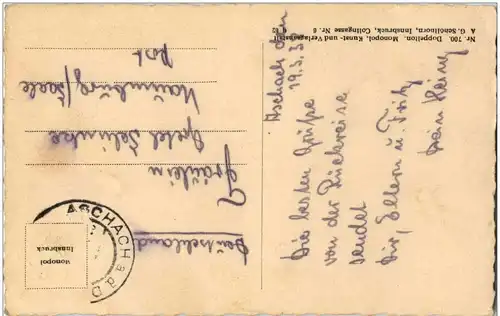 Aschach den
19.5.3
Die besten Grüße
von der Rückreise
sendet
Dir, Eltern u. Fritz
Dein Heinz
Fräulein
Naumburg/Saale
Post
Deutschland
ASCHACH a.d.D.
Monopol
Innsbruck
Nr. 700. Doppelton. Monopol, Kunst- und Verlagsanstalt
A G. Schöllhorn, Innsbruck, Colingasse Nr. 6